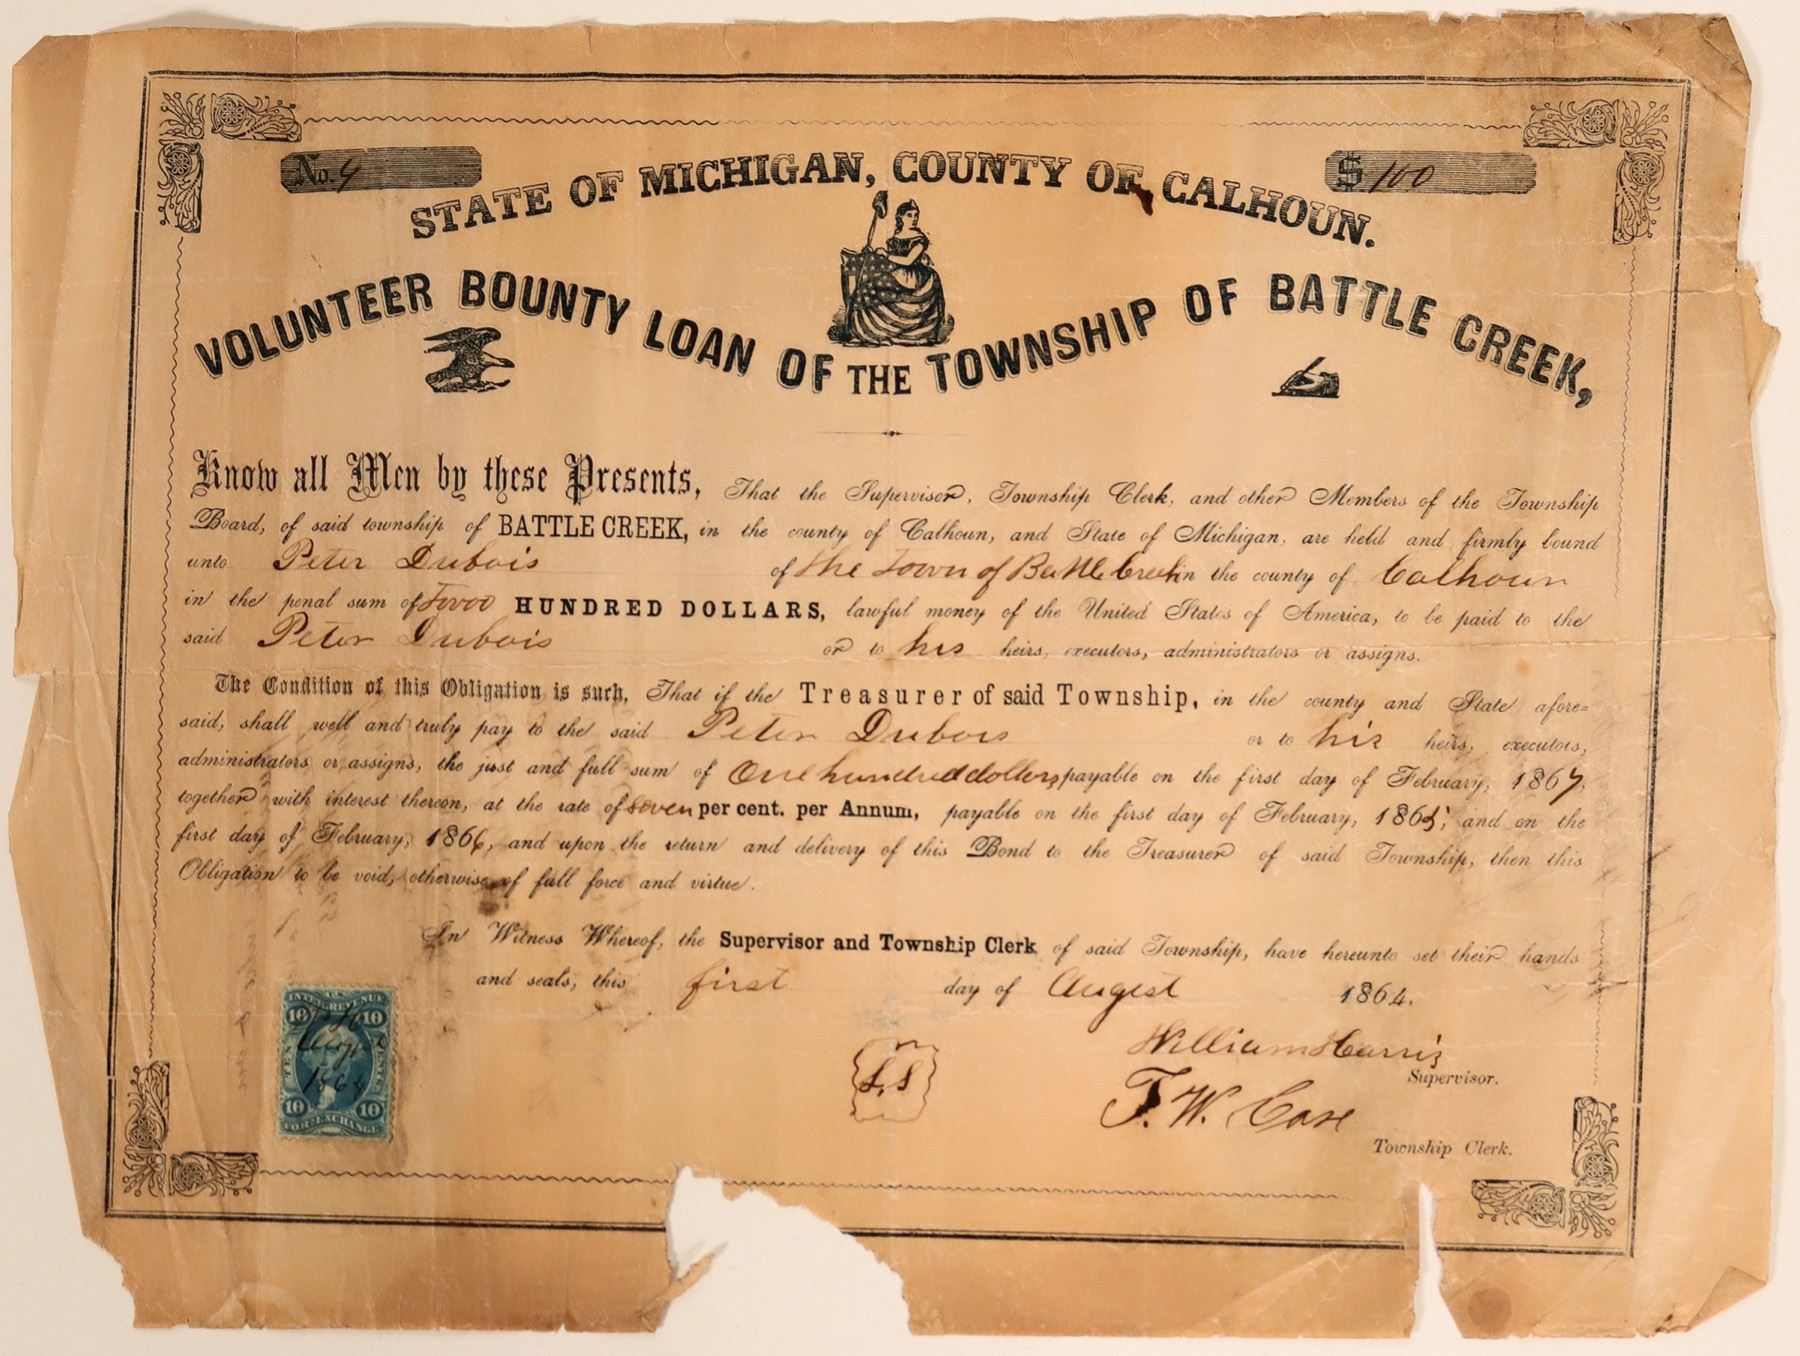 No. 4
$ 100
STATE OF MICHIGAN, COUNTY OF CALHOUN.
VOLUNTEER BOUNTY LOAN OF THE TOWNSHIP OF BATTLE CREEK,
Know all Men by these Presents, That the Supervisor, Township Clerk, and other Members of the Township
Board, of said township of BATTLE CREEK, in the county of Calhoun, and State of Michigan, are held and firmly bound
unto Peter Dubois of the Town of Battle Creek in the county of Calhoun
in the penal sum of Two HUNDRED DOLLARS, lawful money of the United States of America, to be paid to the
said Peter Dubois or to his heirs, executors, administrators or assigns.
The Condition of this Obligation is such, That if the Treasurer of said Township, in the county and State afore=
said, shall well and truly pay to the said Peter Dubois or to his heirs, executors,
administrators or assigns, the just and full sum of One hundred dollars payable on the first day of February, 1867,
together with interest thereon, at the rate of seven per cent. per Annum, payable on the first day of February, 1865, and on the
first day of February, 1866, and upon the return and delivery of this Bond to the Treasurer of said Township, then this
Obligation to be void, otherwise of full force and virtue.
In Witness Whereof, the Supervisor and Township Clerk of said Township, have hereunto set their hands
and seals, this first day of Augest 1864.
INTER. REVENUE
10 10
TEN CENTS
1864
10 10
FOR. EXCHANGE
L, S
William Harris
Supervisor.
T. W. Case
Township Clerk.